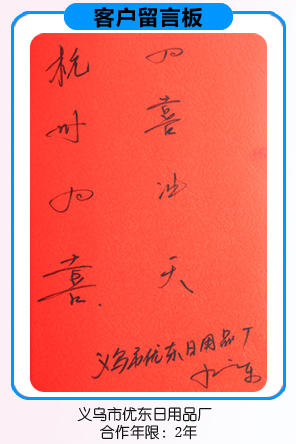 客户留言板
杭州喜
喜冲天
义乌市优东日用品厂
义乌市优东日用品厂
合作年限：2年